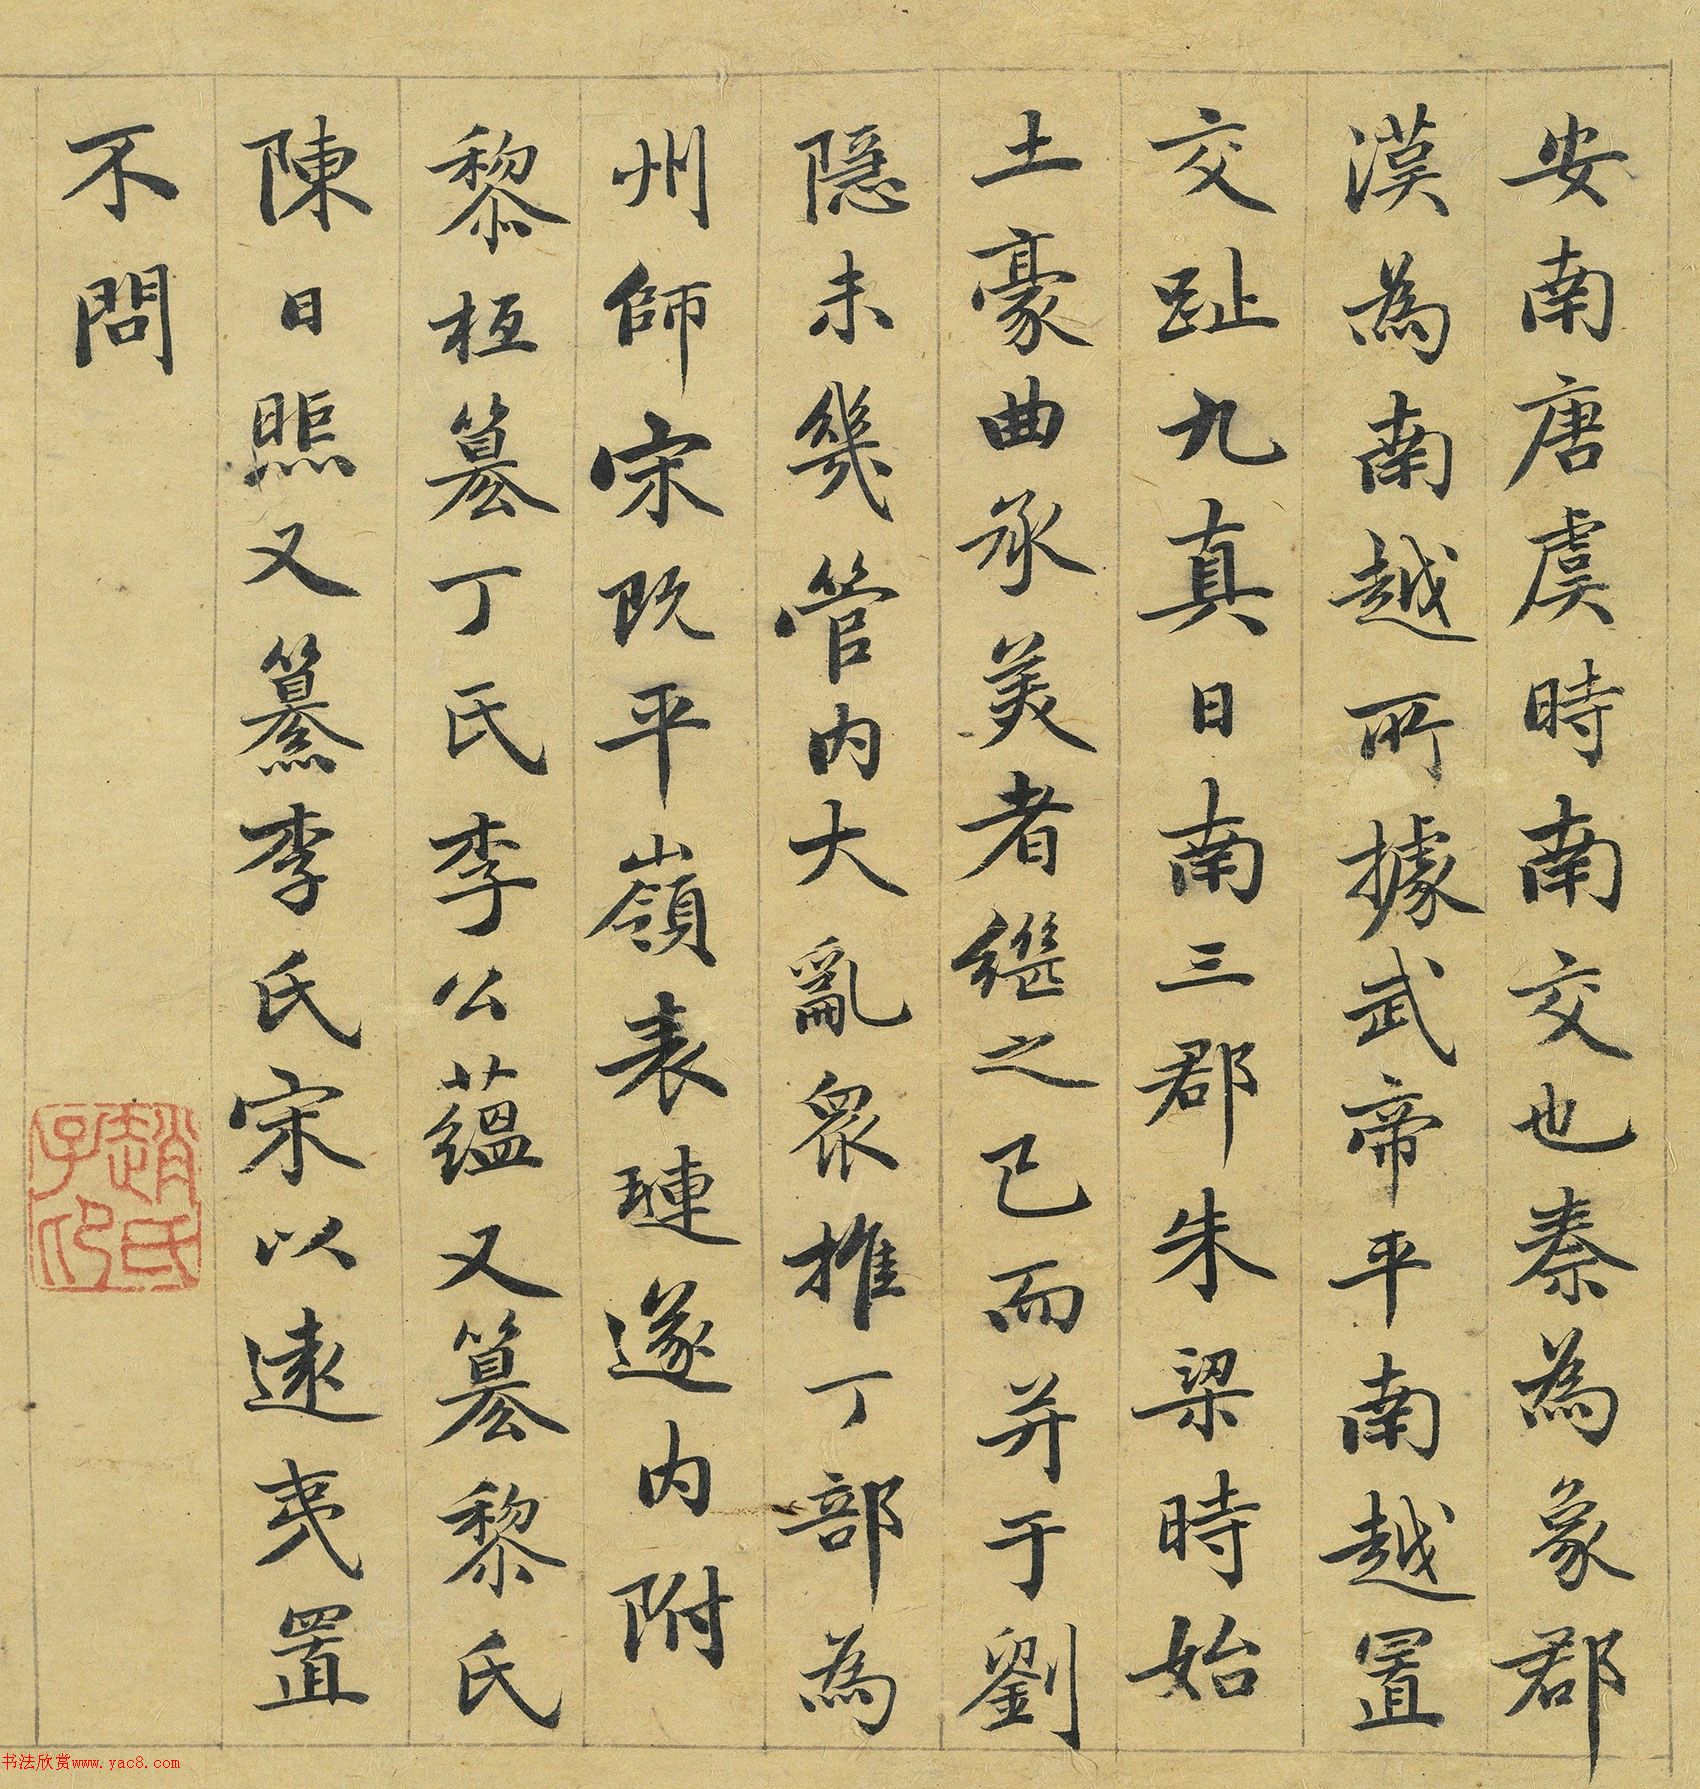 安南唐虞時南交也秦為象郡
漢為南越所據武帝平南越置
交趾九真日南三郡朱梁時始
土豪曲承美者繼之已而并于劉
隱未幾管内大亂衆推丁部為
州師宋既平嶺表璉遂内附
黎桓篡丁氏李公蘊又篡黎氏
陳日煚又纂李氏宋以遠夷置
不問
趙氏子印
书法欣赏www.yac8.com